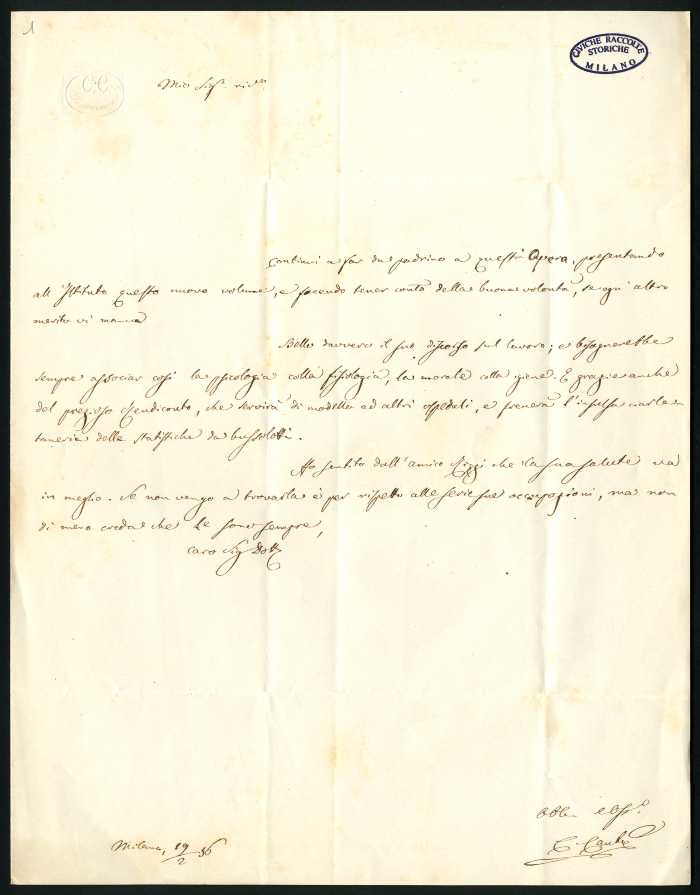 1
CIVICHE RACCOLTE
STORICHE
MILANO
C. C.
Mio Sigr. riv.o
Continui a far da padrino a questa Opera, presentando
all'Istituto questo nuovo volume, e facendo tener conto della buona volontà, se ogni altro
merito vi manca
Bello davvero il suo discorso sul lavoro; e bisognerebbe
sempre associar così la psicologia colla fisiologia, la morale colla igiene. E grazie anche
del prezioso Rendiconto, che servirà di modello ad altri ospedali, e frenerà l'insulsa ciarla-
taneria delle statistiche da bussolotti.
Ho sentito dall'amico che la sua salute va
in meglio. Se non vengo a trovarla è per rispetto alle serie sue occupazioni, ma non
di meno creda che le sono sempre,
caro Sig Dott
Milano, 19/2 56
Obbl. e Aff.o
C. Cantù